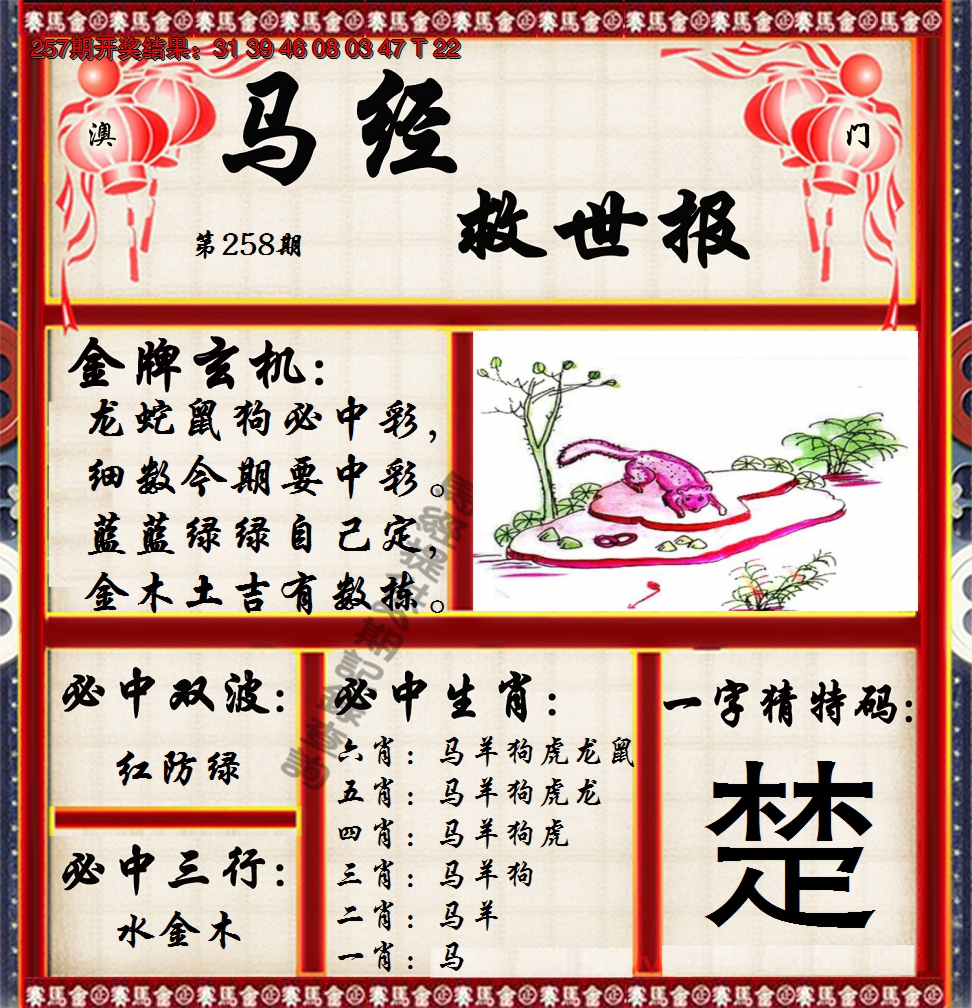 257期开奖结果：31 39 46 08 03 47 T 22
澳
门
马经
救世报
第258期
金牌玄机：
龙蛇鼠狗必中彩，
细数今期要中彩。
蓝蓝绿绿自己定，
金木土吉有数拣。
必中双波：
红防绿
必中三行：
水金木
必中生肖：
六肖：马羊狗虎龙鼠
五肖：马羊狗虎龙
四肖：马羊狗虎
三肖：马羊狗
二肖：马羊
一肖：马
一字猜特码：
楚